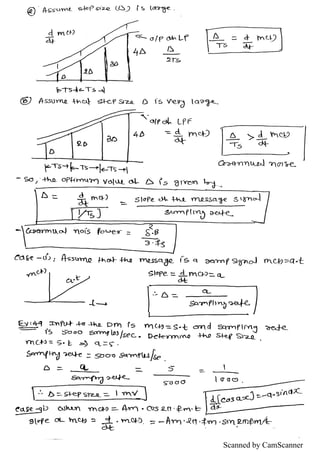 ⓐ Assume step size (Δ) is large.
d/dt m(t)
o/p of LP
4Δ
3Δ
2Δ
Δ
Δ/2Ts
Δ/Ts = d/dt m(t)
Ts Ts
ⓑ Assume that step size Δ is very large
o/p of LPF
4Δ = d/dt m(t)
3Δ
2Δ
Δ
Δ/Ts > d/dt m(t)
Ts Ts Ts
Grannual noise
- So, the optimum value of Δ is given by
Δ = d/dt m(t) / [1/Ts] = slope of the message signal / sampling rate
- Grannual nois power =
Case-ii), Assume that the message is a ramp signal m(t)=a.t
m(t)
a.t
t
slope = d/dt m(t) = a
∴ Δ = a / sampling rate
Input to the DM is m(t)=5.t and sampling rate
is 5000 samples/sec. Determine the step size.
m(t) = 5.t ⇒ a=5.
Sampling rate = 5000 samples/se.
Δ = a / sampling rate = 5/5000 = 1/1000.
∴ Δ = step size = 1 mV
d/dt [cos ax] = -a.sin ax
when m(t) = Am.cos 2π.fm.t
slope of m(t) = d/dt . m(t). = -Am.2π.fm.sin 2πfmt
Scanned by CamScanner